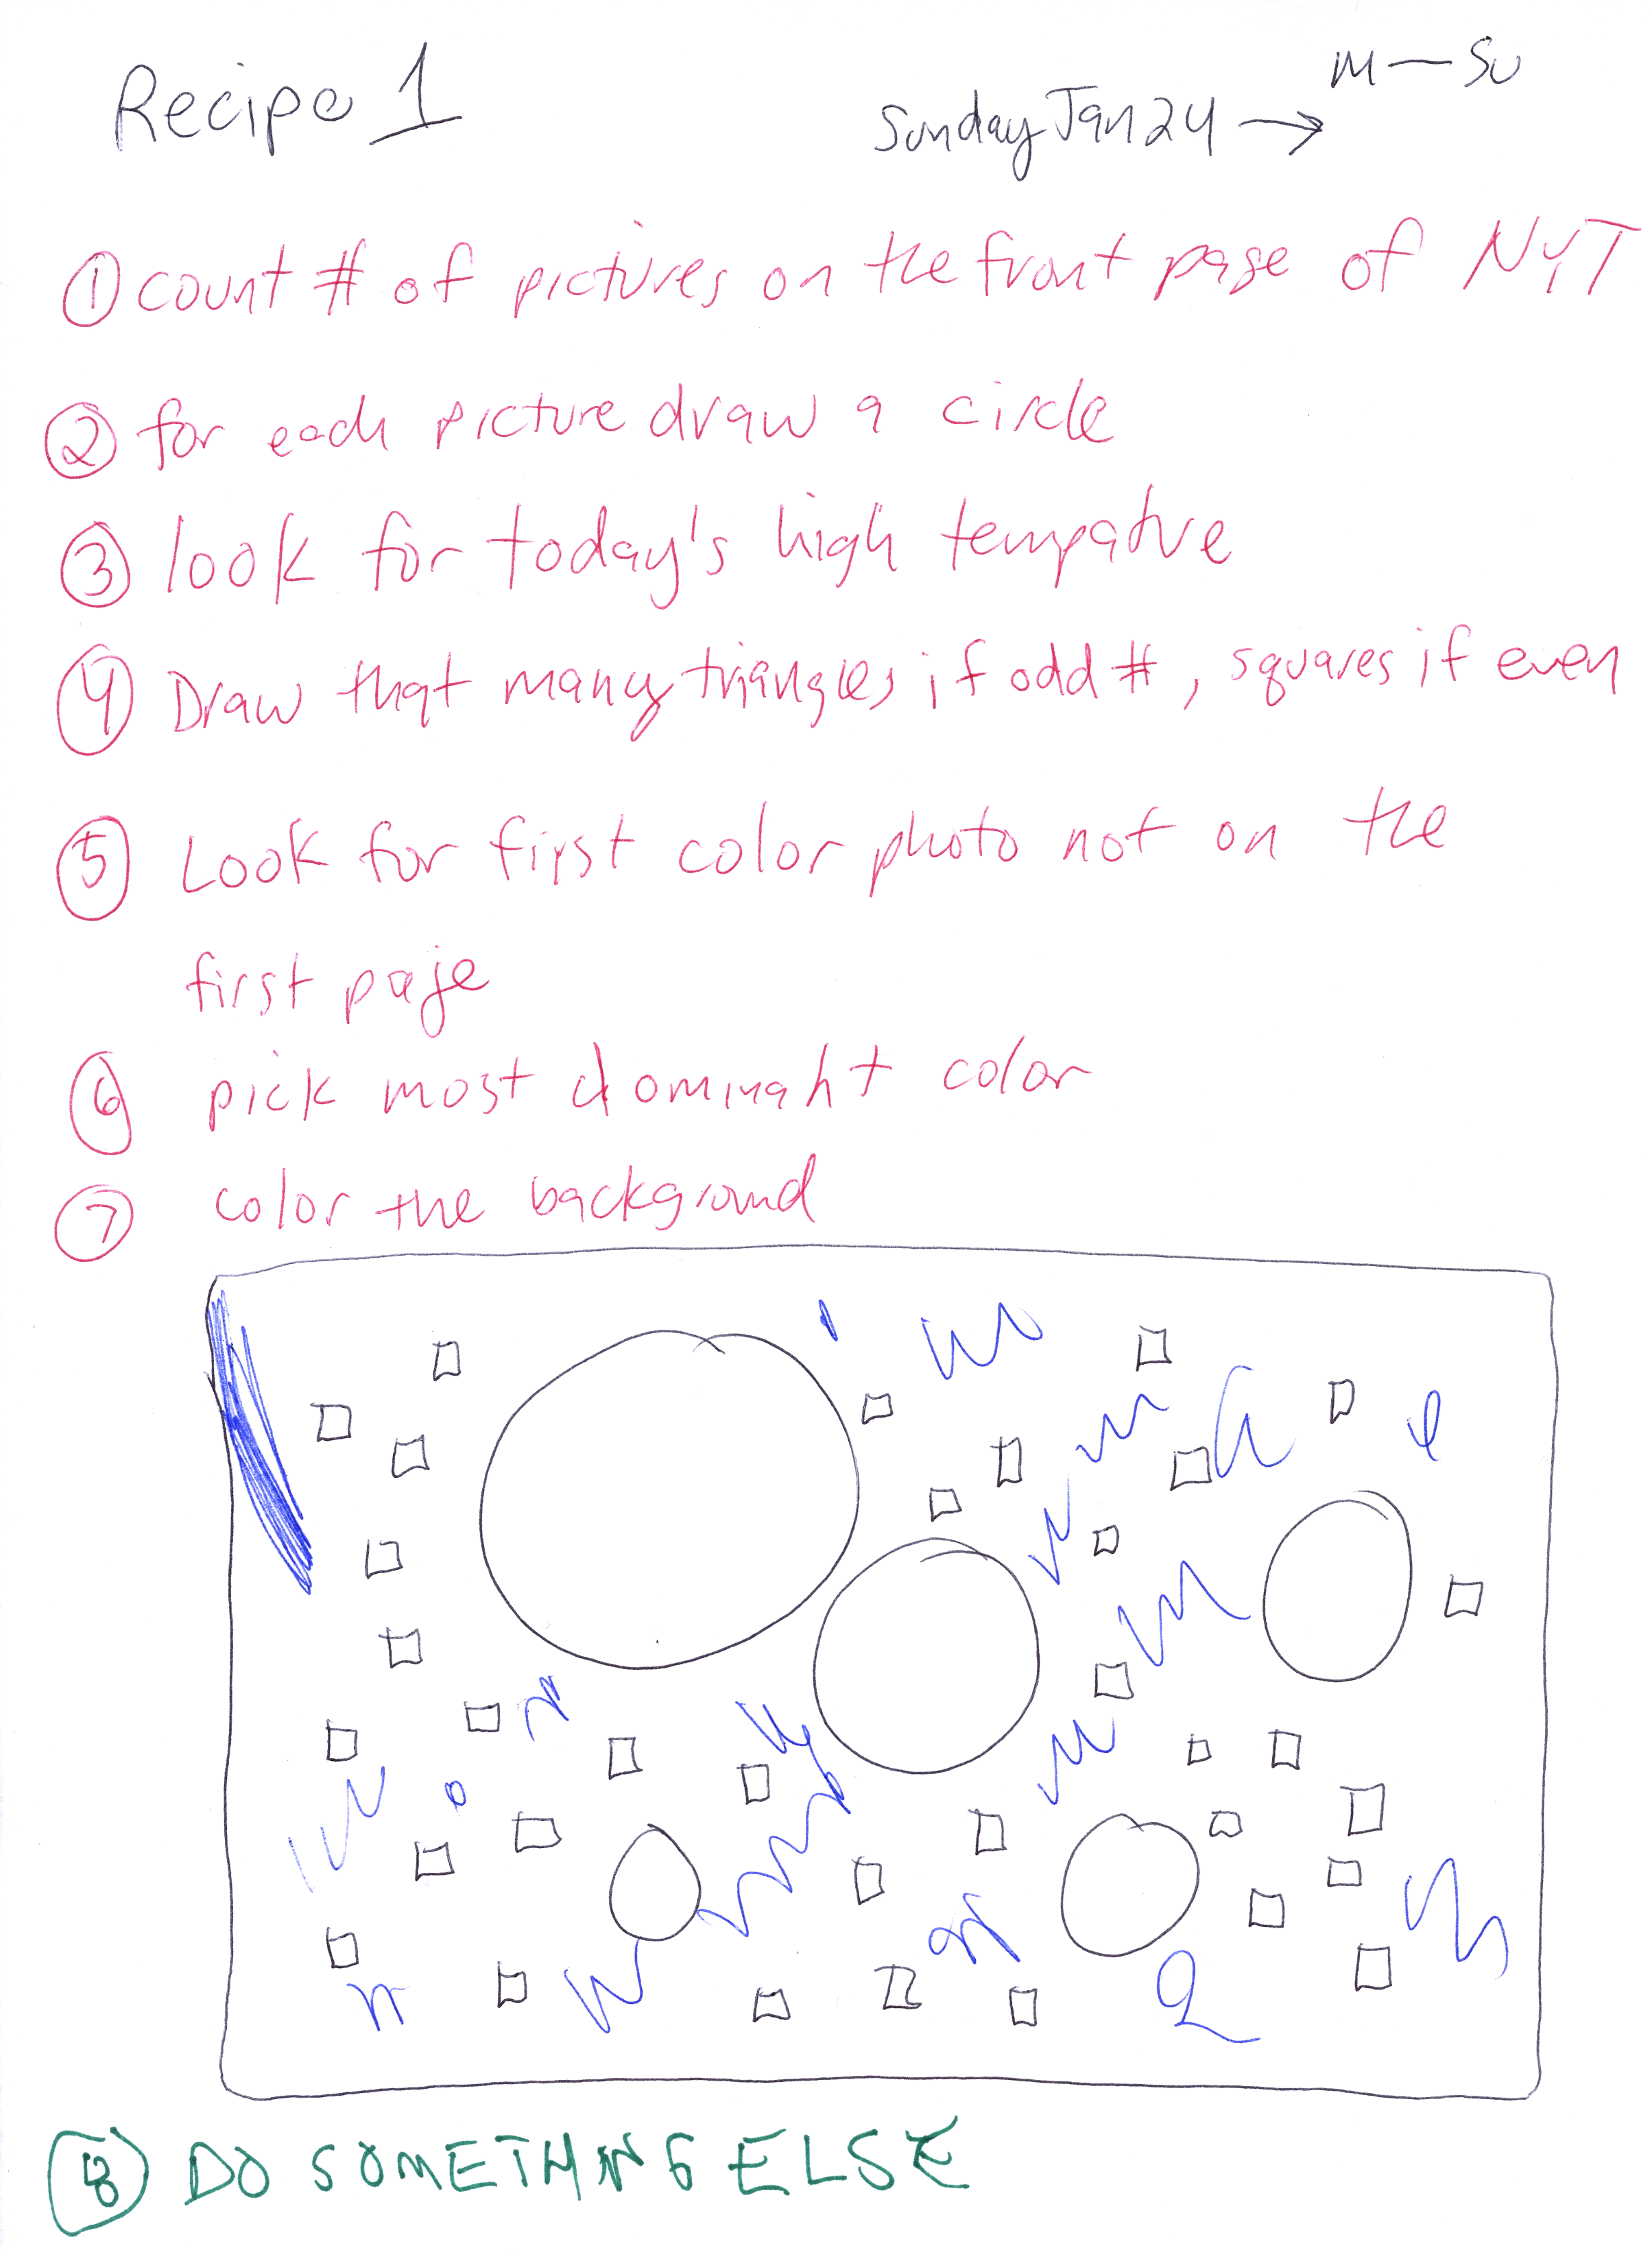 Recipe 1
M — Su
Sunday Jan 24 →
① count # of pictures on the front page of NYT
② for each picture draw a circle
③ look for today's high tempatve
④ Draw that many triangles if odd #, squares if even
⑤ Look for first color photo not on the
first page
⑥ pick most dominant color
⑦ color the background
⑧ DO SOMETHING ELSE